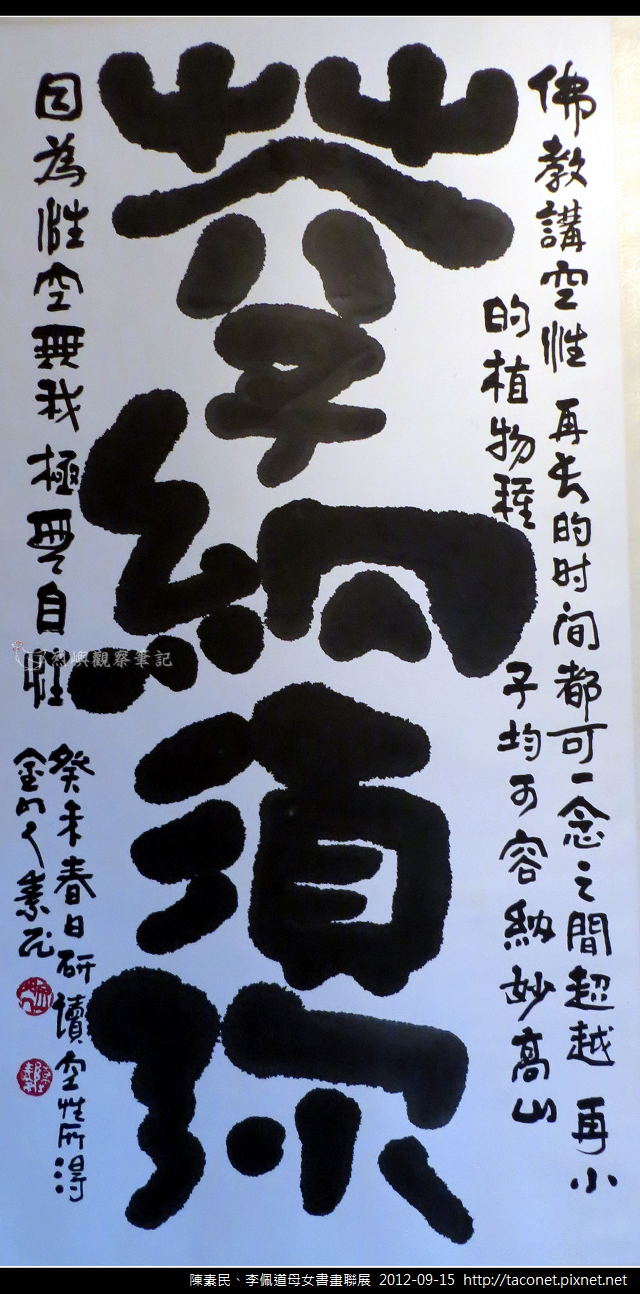 佛教講空性 再长的时间都可一念之間超越 再小
的植物種子均可容納妙高山
芥子納須弥
因為性空無我極無自性
癸未春日研讀空性所得
金门人素民
烈嶼觀察筆記
陳素民、李佩道母女書畫聯展 2012-09-15 http://taconet.pixnet.net